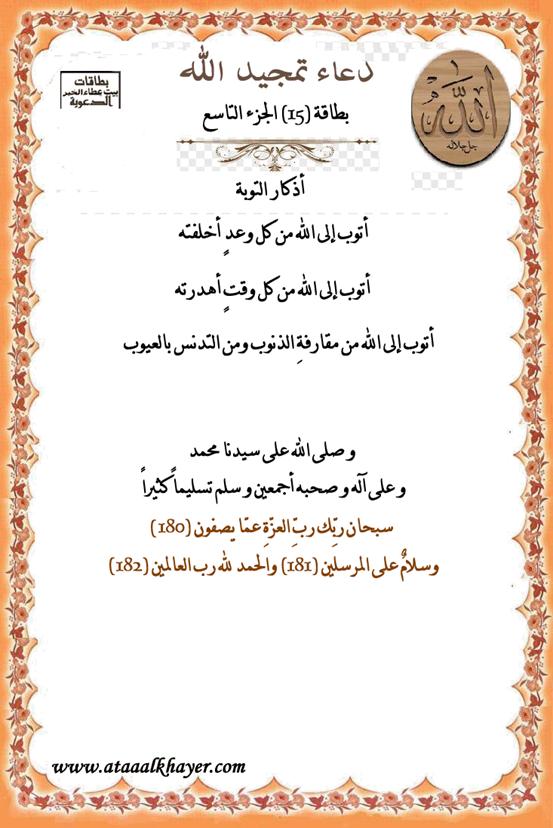 دعاء تمجيد الله
بطاقات
بيت عطاء الخير
الدعوية
الله
جل جلاله
بطاقة (15) الجزء التاسع
أذكار التوبة
أتوب إلى الله من كل وعدٍ أخلفته
أتوب إلى الله من كل وقتٍ أهدرته
أتوب إلى الله من مقارفةِ الذنوب ومن التدنس بالعيوب
وصلى الله على سيدنا محمد
وعلى آله وصحبه أجمعين وسلم تسليماً كثيراً
سبحان ربِّك ربِّ العزّةِ عمّا يصفون (180)
وسلامٌ على المرسلين (181) والحمد لله رب العالمين (182)
www.ataaalkhayer.com